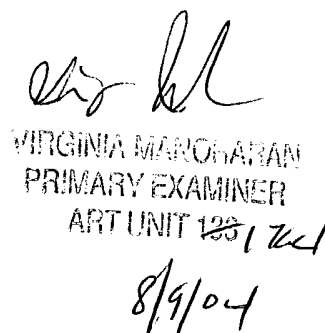 VIRGINIA MANOHARAN
PRIMARY EXAMINER
ART UNIT 133 1764
8/9/04